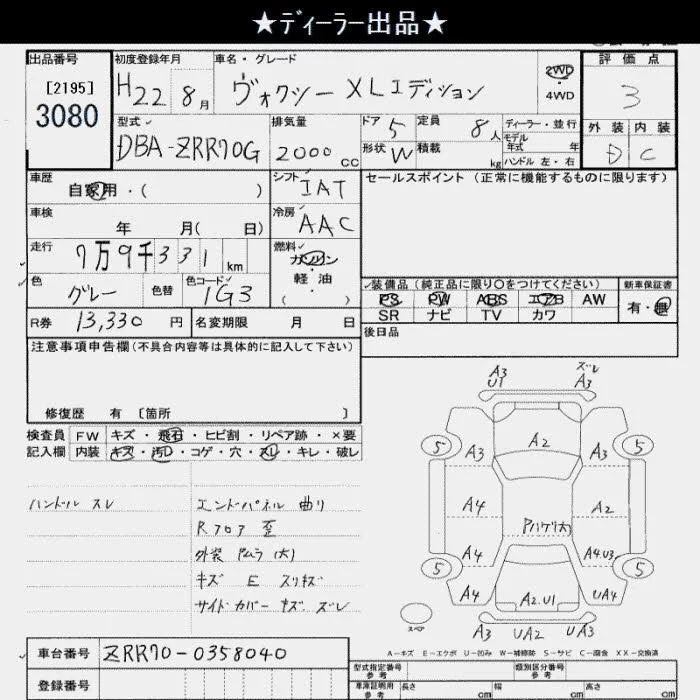 ★ディーラー出品★
出品番号 初度登録年月 車名・グレード 評価点
[2195] H22 8月 ヴォクシー XLエディション 2WD 3
3080 4WD
型式 排気量 ドア 5 定員 8人 ディーラー・並行 外装 内装
DBA-ZRR70G 2000cc 形状 W 積載 kg モデル年式 年 D C
ハンドル 左・右
車歴 自家用・( ) シフト IAT セールスポイント (正常に機能するものに限ります)
車検 年 月( 日) 冷房 AAC
走行 7万9千331km 燃料 ガソリン・軽油・( )
色 グレー 色替 色コード 1G3 装備品(純正品に限り○をつけてください) 新車保証書
PS PW ABS エアB AW 有・無
R券 13,330円 名変期限 月 日 SR ナビ TV カワ
注意事項申告欄(不具合内容等は具体的に記入して下さい) 後日品
修復歴 有 [箇所 ]
検査員 FW キズ・飛石・ヒビ割・リペア跡・×要
記入欄 内装 キズ・汚れ・コゲ・穴・スレ・キレ・破レ
ハンドル スレ エンドパネル 曲り
Rフロア 歪
外装 ムラ(大)
キズ E スリキズ
サイドカバー キズ ズレ
A3 ズレ
U1 A3
5 5
A3 A2 A3
A4 A2
Pハゲリ(大)
A4 A4.U3
5 5
A4 A2.U1 UA4
スペア A3 UA2 UA3
A-キズ E-エクボ U-凹み W-補修跡 S-サビ C-腐食 XX-交換済
車台番号 ZRR70-0358040
登録番号 型式指定番号 参考 類別区分番号 参考
車庫証明用 参考 長さ cm 幅 cm 高さ cm